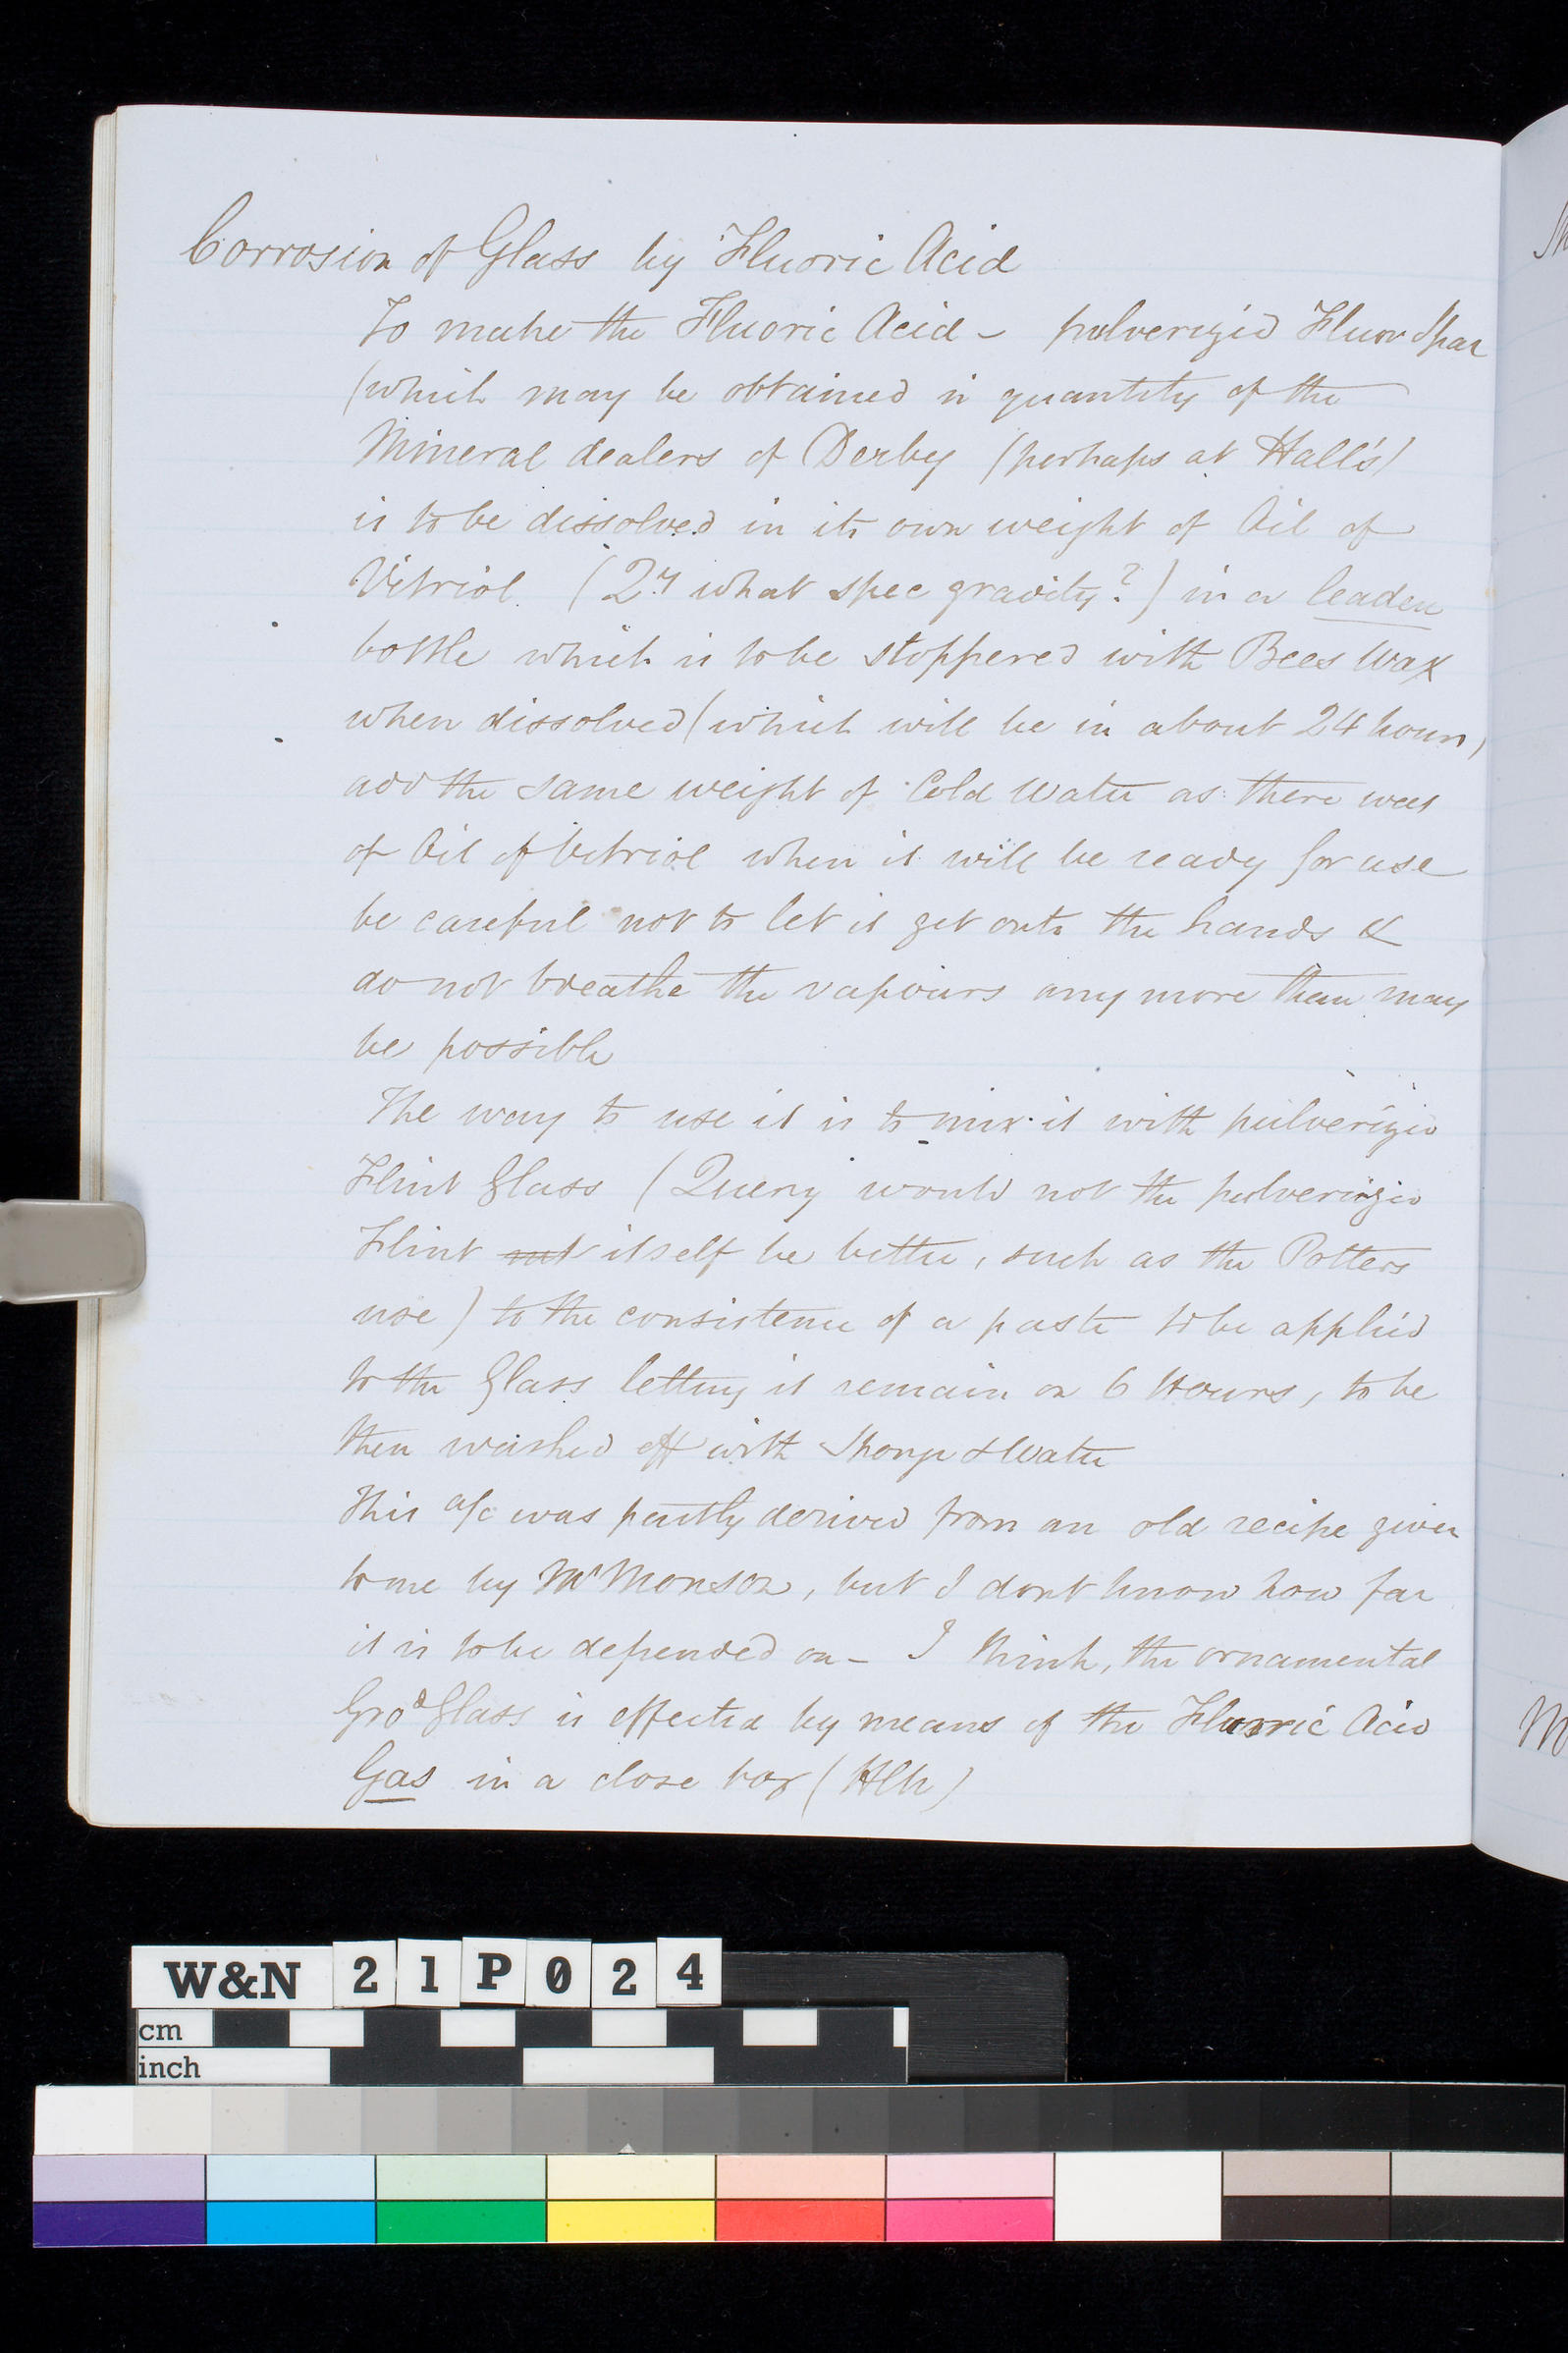 Corrosion of Glass by Fluoric Acid
To make the Fluoric Acid - pulverized Fluor Spar
(which may be obtained in quantity of the
Mineral dealers of Derby (perhaps at Hall's)
is to be dissolved in its own weight of Oil of
Vitriol. (Qy what spec gravity?) in a leaden
bottle which is to be stoppered with Bees Wax
when dissolved (which will be in about 24 hours)
add the same weight of Cold Water as there was
of Oil of Vitriol when it will be ready for use
be careful not to let it get onto the hands &
do not breathe the vapours any more than may
be possible
The way to use it is to mix it with pulverized
Flint Glass (Query would not the pulverized
Flint not itself be better, such as the Potters
use) to the consistence of a paste to be applied
to the Glass letting it remain on 6 Hours, to be
then washed off with Sponge & Water
This a/c was partly derived from an old recipe given
to me by Mr Monson, but I dont know how far
it is to be depended on - I think, the ornamental
Grod Glass is effected by means of the Fluoric Acid
Gas in a close box (
W&N 21P024
cm
inch